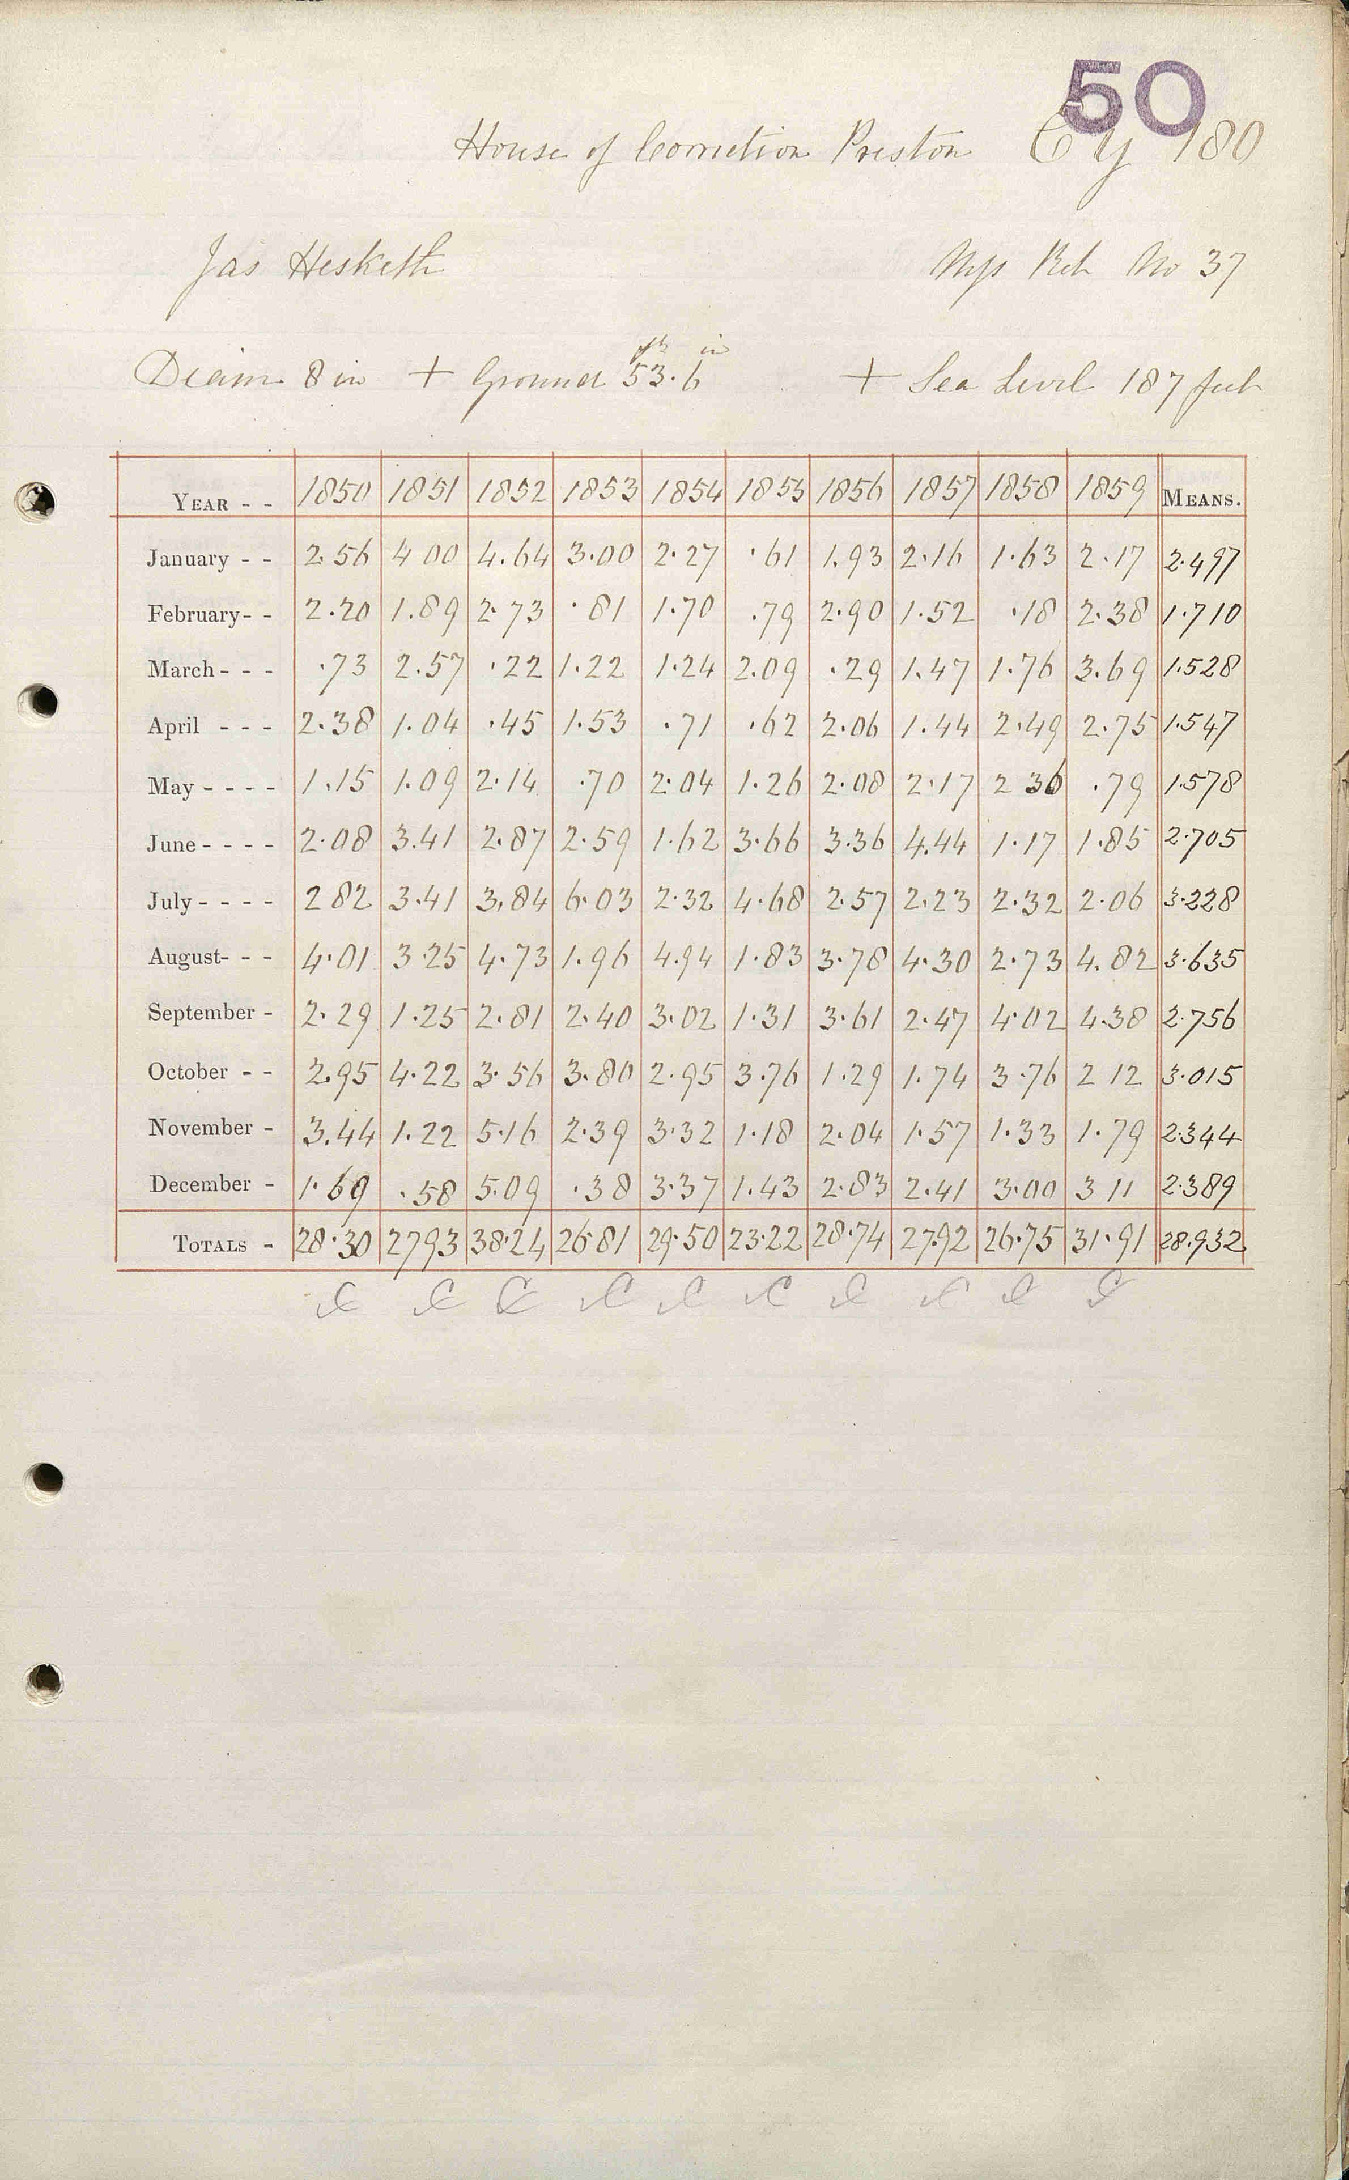 50
House of Correction Preston C y 180
Jas Hesketh
No 37
Diam 8 in + Ground 53 ft. 6 in + Sea Level 187 feet
YEAR - - 1850 1851 1852 1853 1854 1855 1856 1857 1858 1859 MEANS.
January - - 2.56 4 00 4.64 3.00 2.27 .61 1.93 2.16 1.63 2.17 2.497
February- - 2.20 1.89 2.73 .81 1.70 .79 2.90 1.52 .18 2.38 1.710
March- - - .73 2.57 .22 1.22 1.24 2.09 .29 1.47 1.76 3.69 1.528
April - - - 2.38 1.04 .45 1.53 .71 .62 2.06 1.44 2.49 2.75 1.547
May - - - - 1.15 1.09 2.14 .70 2.04 1.26 2.08 2.17 2 36 .79 1.578
June - - - - 2.08 3.41 2.87 2.59 1.62 3.66 3.36 4.44 1.17 1.85 2.705
July - - - - 2 82 3.41 3.84 6.03 2.32 4.68 2.57 2.23 2.32 2.06 3.228
August- - - 4.01 3.25 4.73 1.96 4.94 1.83 3.78 4.30 2.73 4.82 3.635
September - 2.29 1.25 2.81 2.40 3.02 1.31 3.61 2.47 4.02 4.38 2.756
October - - 2.95 4.22 3.56 3.80 2.95 3.76 1.29 1.74 3.76 2 12 3.015
November - 3.44 1.22 5.16 2.39 3.32 1.18 2.04 1.57 1.33 1.79 2.344
December - 1.69 .58 5.09 .38 3.37 1.43 2.83 2.41 3.00 3 11 2.389
TOTALS - 28.30 27.93 38.24 26.81 29.50 23.22 28.74 27.92 26.75 31.91 28.932